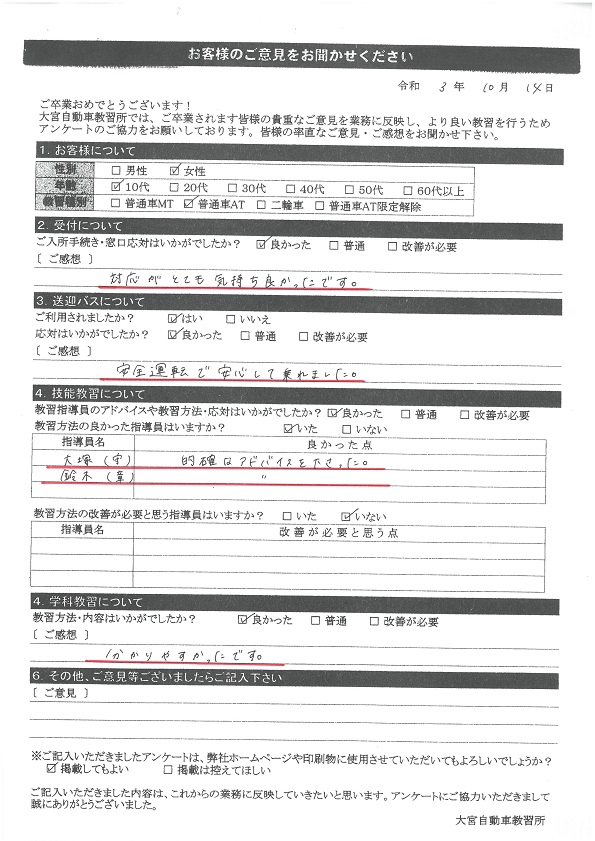 お客様のご意見をお聞かせください
令和 3 年 10 月 14 日
ご卒業おめでとうございます！
大宮自動車教習所では、ご卒業されます皆様の貴重なご意見を業務に反映し、より良い教習を行うため
アンケートのご協力をお願いしております。皆様の率直なご意見・ご感想をお聞かせ下さい。
1. お客様について
性別 □ 男性 ☑ 女性
年齢 ☑ 10代 □ 20代 □ 30代 □ 40代 □ 50代 □ 60代以上
教習種別 □ 普通車MT ☑ 普通車AT □ 二輪車 □ 普通車AT限定解除
2. 受付について
ご入所手続き・窓口応対はいかがでしたか？ ☑ 良かった □ 普通 □ 改善が必要
〔 ご感想 〕
対応がとても気持ち良かったです。
3. 送迎バスについて
ご利用されましたか？ ☑ はい □ いいえ
応対はいかがでしたか？ ☑ 良かった □ 普通 □ 改善が必要
〔 ご感想 〕
安全運転で安心して乗れました。
4. 技能教習について
教習指導員のアドバイスや教習方法・応対はいかがでしたか？ ☑ 良かった □ 普通 □ 改善が必要
教習方法の良かった指導員はいますか？ ☑ いた □ いない
指導員名 良かった点
大塚（守） 的確なアドバイスを下さった。
鈴木（章） 〃
教習方法の改善が必要と思う指導員はいますか？ □ いた ☑ いない
指導員名 改善が必要と思う点
4. 学科教習について
教習方法・内容はいかがでしたか？ ☑ 良かった □ 普通 □ 改善が必要
〔 ご感想 〕
分かりやすかったです。
6. その他、ご意見等ございましたらご記入下さい
〔 ご意見 〕
※ご記入いただきましたアンケートは、弊社ホームページや印刷物に使用させていただいてもよろしいでしょうか？
☑ 掲載してもよい □ 掲載は控えてほしい
ご記入いただきました内容は、これからの業務に反映していきたいと思います。アンケートにご協力いただきまして
誠にありがとうございました。
大宮自動車教習所